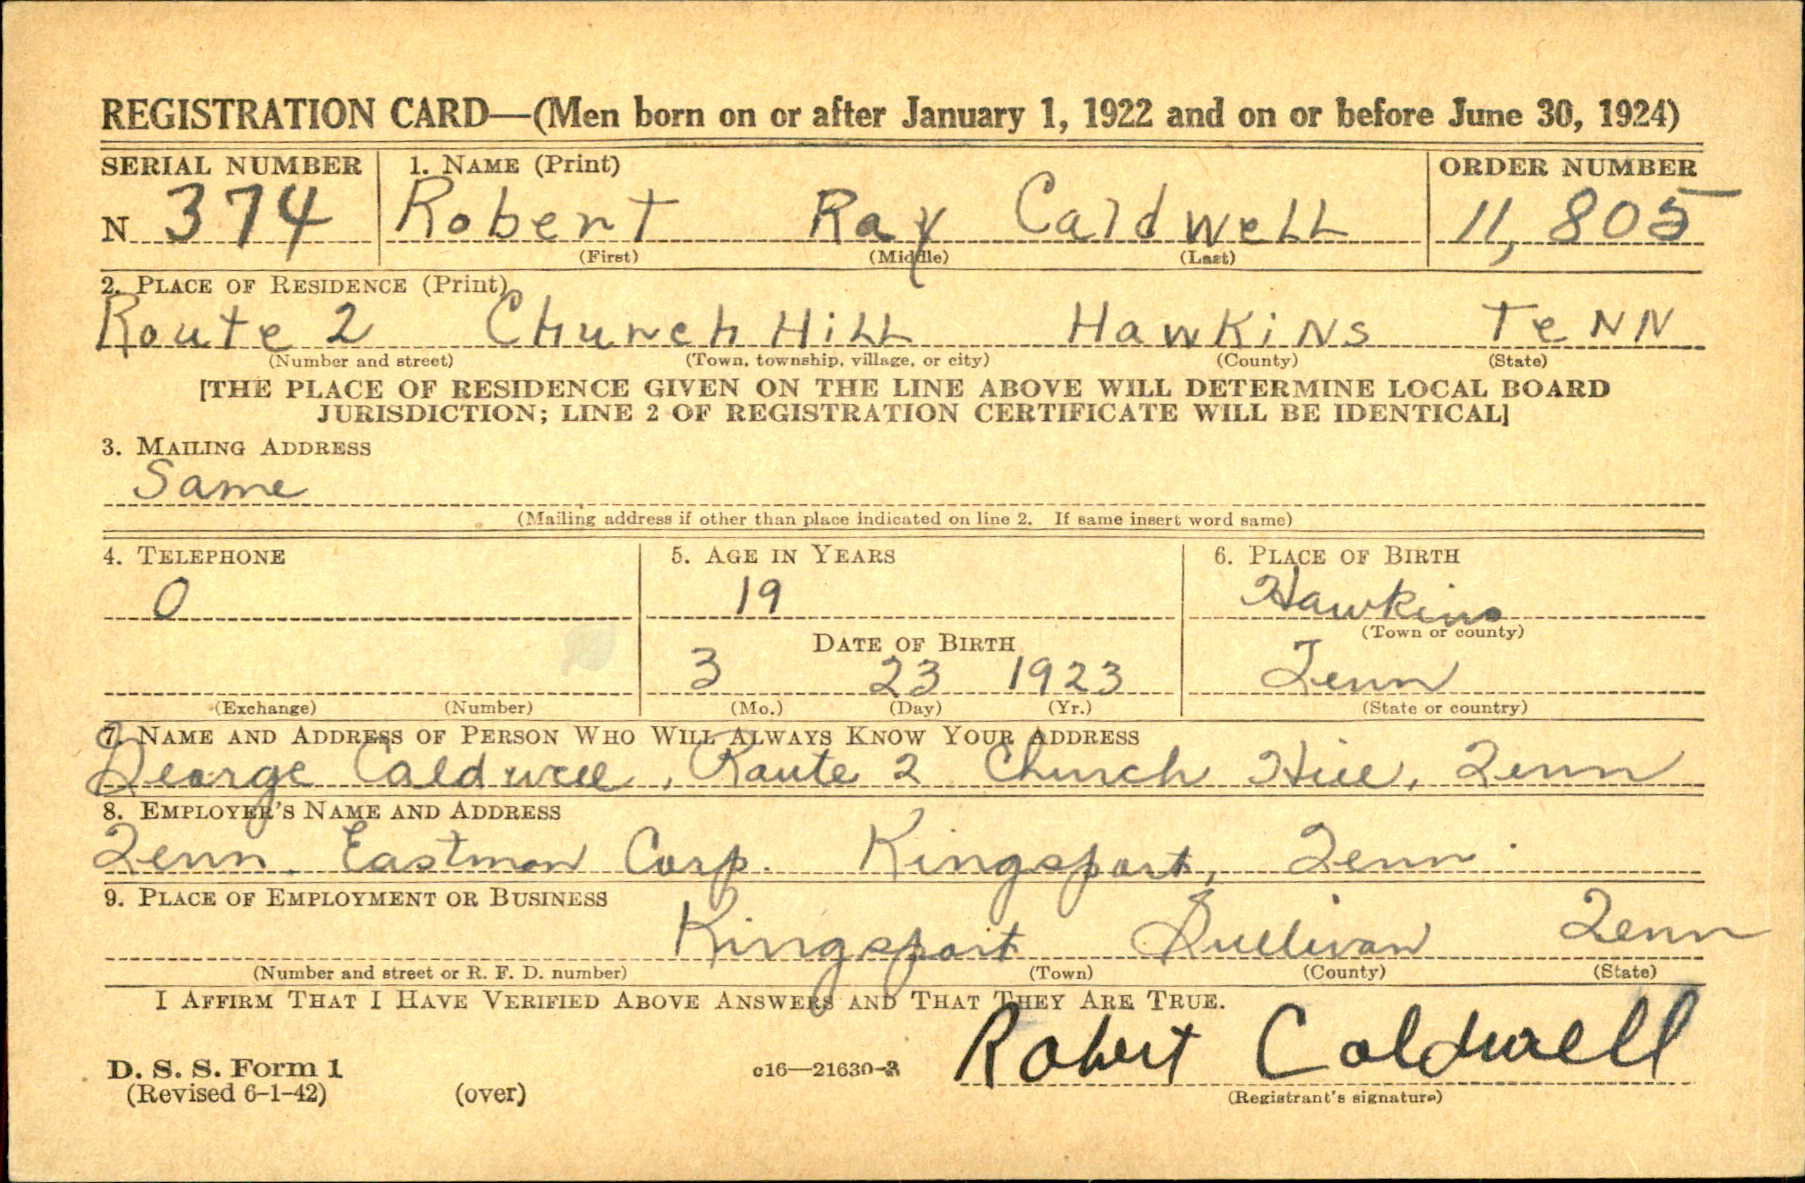 REGISTRATION CARD—(Men born on or after January 1, 1922 and on or before June 30, 1924)
SERIAL NUMBER 1. NAME (Print) ORDER NUMBER
N 374 Robert Ray Caldwell 11,805
(First) (Middle) (Last)
2. PLACE OF RESIDENCE (Print)
Route 2 Church Hill Hawkins Tenn
(Number and street) (Town, township, village, or city) (County) (State)
[THE PLACE OF RESIDENCE GIVEN ON THE LINE ABOVE WILL DETERMINE LOCAL BOARD
JURISDICTION; LINE 2 OF REGISTRATION CERTIFICATE WILL BE IDENTICAL]
3. MAILING ADDRESS
Same
(Mailing address if other than place indicated on line 2. If same insert word same)
4. TELEPHONE 5. AGE IN YEARS 6. PLACE OF BIRTH
0 19 Hawkins
(Town or county)
DATE OF BIRTH
3 23 1923 Tenn
(Exchange) (Number) (Mo.) (Day) (Yr.) (State or country)
7. NAME AND ADDRESS OF PERSON WHO WILL ALWAYS KNOW YOUR ADDRESS
George Caldwell, Route 2 Church Hill, Tenn
8. EMPLOYER'S NAME AND ADDRESS
Tenn. Eastman Corp. Kingsport, Tenn.
9. PLACE OF EMPLOYMENT OR BUSINESS
Kingsport Sullivan Tenn
(Number and street or R. F. D. number) (Town) (County) (State)
I AFFIRM THAT I HAVE VERIFIED ABOVE ANSWERS AND THAT THEY ARE TRUE.
Robert Caldwell
D. S. S. Form 1 c16—21630-2
(Revised 6-1-42) (over) (Registrant's signature)